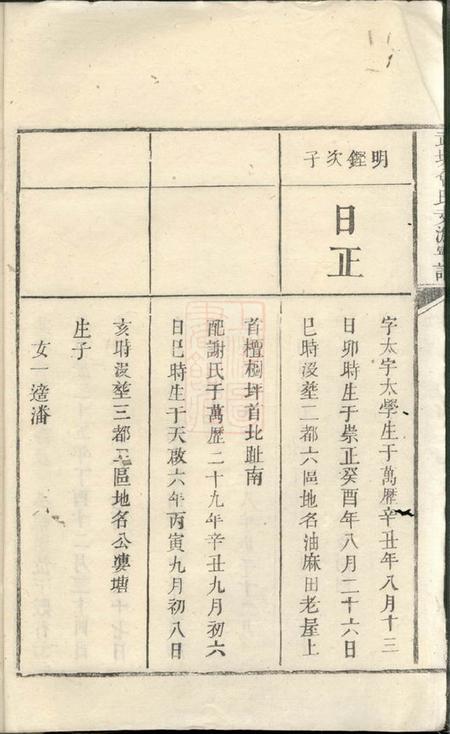 明鏗次子
日正
字太字太學生于萬曆辛丑年八月十三
日卯時生于崇正癸酉年八月二十六日
巳時沒塟二都六區地名油麻田老屋上
首檀樹坪首北趾南
配謝氏于萬歷二十九年辛丑九月初六
日巳時生于天啟六年丙寅九月初八日
亥時沒塟三都 區地名公婆塘
生子
女一適潘